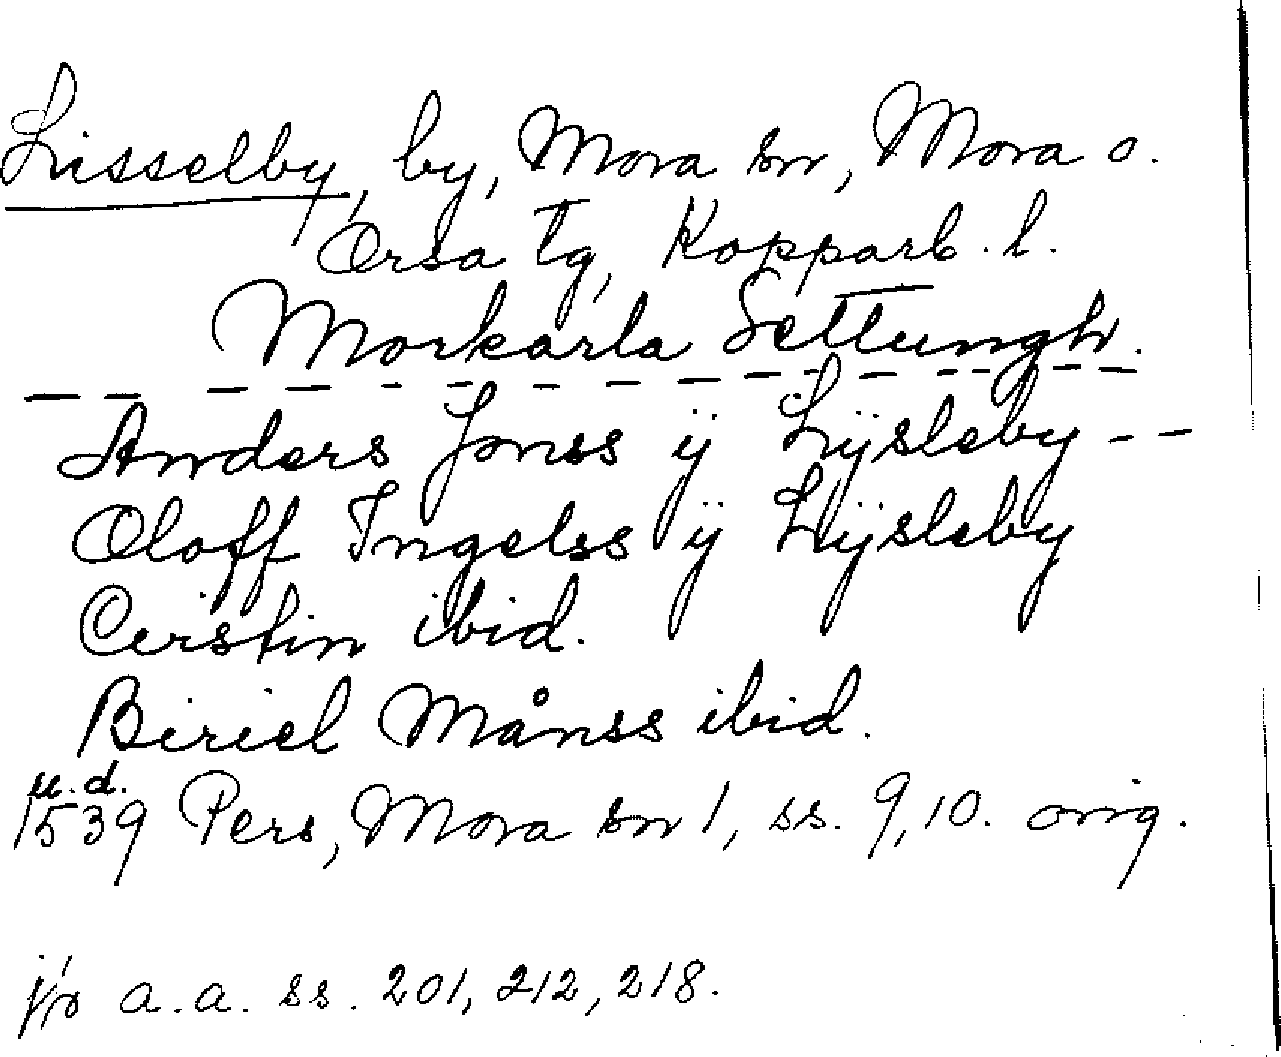 Lisselby, by, Mora sn, Mora o.
Orsa tg, Kopparb. l.
Morkarla Settungh.
— — — — — — — — — — — — — — — —
Anders Jonss ÿ Lÿsleby - -
Oloff Ingelss ÿ Lÿsleby
Cerstin ibid.
Biriel Månss ibid.
u.d.
1539 Pers, Mora sn 1, ss. 9, 10. orig.
jfr a.a. ss. 201, 212, 218.